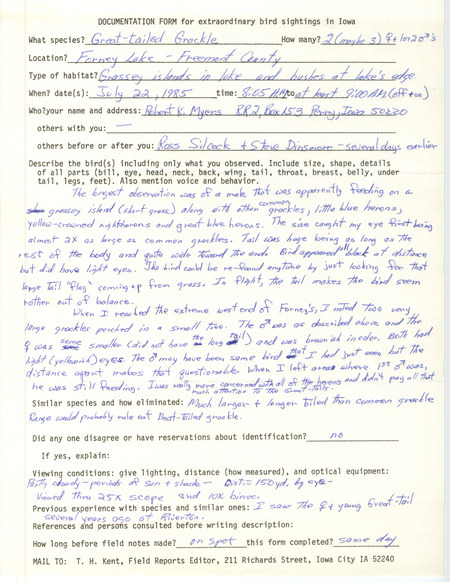 DOCUMENTATION FORM for extraordinary bird sightings in Iowa
What species? Great-tailed Grackle How many? 2 (maybe 3) ♀ + 1 or 2 ♂'s
Location? Forney Lake - Freemont County
Type of habitat? Grassey islands in lake and bushes at lake's edge
When? date(s): July 22, 1985 time: 8:05 AM to at least 9:00 AM (off + on)
Who? your name and address: Robert K. Myers RR2, Box 153 Perry, Iowa 50220
others with you: —
others before or after you: Ross Silcock + Steve Dinsmore - several days earlier
Describe the bird(s) including only what you observed. Include size, shape, details
of all parts (bill, eye, head, neck, back, wing, tail, throat, breast, belly, under
tail, legs, feet). Also mention voice and behavior.
The longest observation was of a male that was apparently feeding on a
grassey island (short grass) along with other common grackles, little blue herons,
yellow-crowned nightherons and great blue herons. The size caught my eye first being
almost 2X as large as common grackles. Tail was huge being as long as the
rest of the body and quite wide toward the end. Bird appeared all black at distance
but did have light eyes. The bird could be re-found anytime by just looking for that
large tail "flag" coming up from grass. In flight, the tail makes the bird seem
rather out of balance.
When I reached the extreme west end of Forney's, I noted two very
large grackles perched in a small tree. The ♂ was as described above and the
♀ was some smaller (did not have the long tail) and was brownish in color. Both had
light (yellowish) eyes. The ♂ may have been same bird that I had just seen but the
distance apart makes that questionable. When I left area where 1st ♂ was,
he was still feeding. I was really more concerned with all of the herons and didn't pay all that
much attention to the Great-tails.
Similar species and how eliminated: Much larger + longer tailed than common grackle
Range could probably rule out Boat-tailed grackle.
Did any one disagree or have reservations about identification? no
If yes, explain:
Viewing conditions: give lighting, distance (how measured), and optical equipment:
Partly cloudy - periods of sun + shade - Dist. = 150 yd. by eye -
Viewed thru 25X scope and 10X binoc.
Previous experience with species and similar ones: I saw the ♀ + young Great-tail
several years ago at Riverton.
References and persons consulted before writing description:
How long before field notes made? on spot this form completed? same day
MAIL TO: T. H. Kent, Field Reports Editor, 211 Richards Street, Iowa City IA 52240